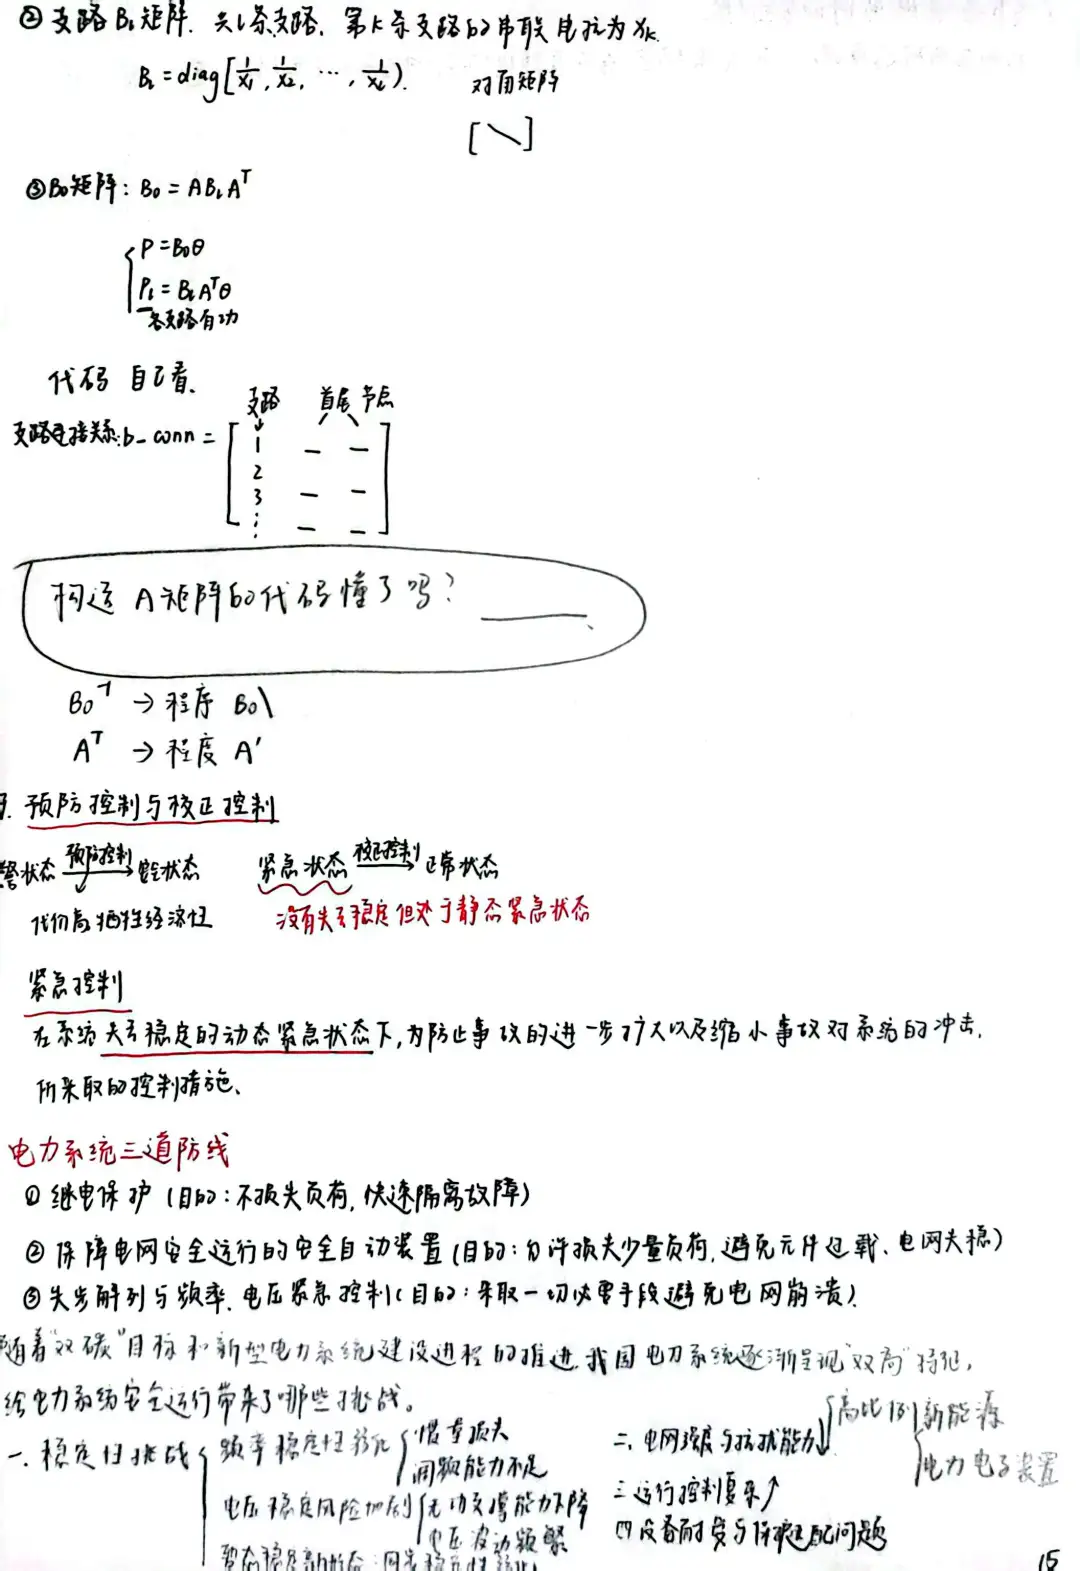 ② 支路BL矩阵. 共L条支路. 第k条支路的串联电抗为Xk.
BL = diag[1/X1, 1/X2, ⋯, 1/XL]. 对角矩阵
[ \ ]
③B0矩阵: B0 = ABLA^T
P = B0θ
PL = BLA^Tθ
各支路有功
代码 自己看.
支路 首尾 节点
支路连接关系: b_conn =
1 — —
2
3 — —
⋮ — —
构造 A矩阵的代码懂了吗?
B0^-1 → 程序 B0\
A^T → 程度 A'
预防控制与校正控制
警状态 预防控制→ 安全状态 紧急状态 校正控制→ 正常状态
代价高 牺牲经济性 没有失去稳定但处于静态紧急状态
紧急控制
在系统失去稳定的动态紧急状态下,为防止事故的进一步扩大以及缩小事故对系统的冲击.
所采取的控制措施.
电力系统三道防线
① 继电保护 (目的: 不损失负荷, 快速隔离故障)
② 保障电网安全运行的安全自动装置 (目的: 允许损失少量负荷, 避免元件过载、电网失稳)
③ 失步解列与频率. 电压紧急控制 (目的: 采取一切必要手段避免电网崩溃).
随着"双碳"目标和新型电力系统建设进程的推进, 我国电力系统逐渐呈现"双高"特征,
给电力系统安全运行带来了哪些挑战。
高比例 新能源
电力电子装置
一. 稳定性挑战
频率稳定性恶化 惯量损失
调频能力不足
电压稳定风险加剧 无功支撑能力下降
电压波动频繁
暂态稳定新形态: 同步稳定性弱化
二. 电网强度与抗扰能力↓
三 运行控制复杂↑
四 设备耐受与保护适配问题
15